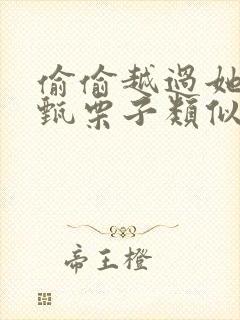 偷偷越過她
甄栗子類似
帝王橙